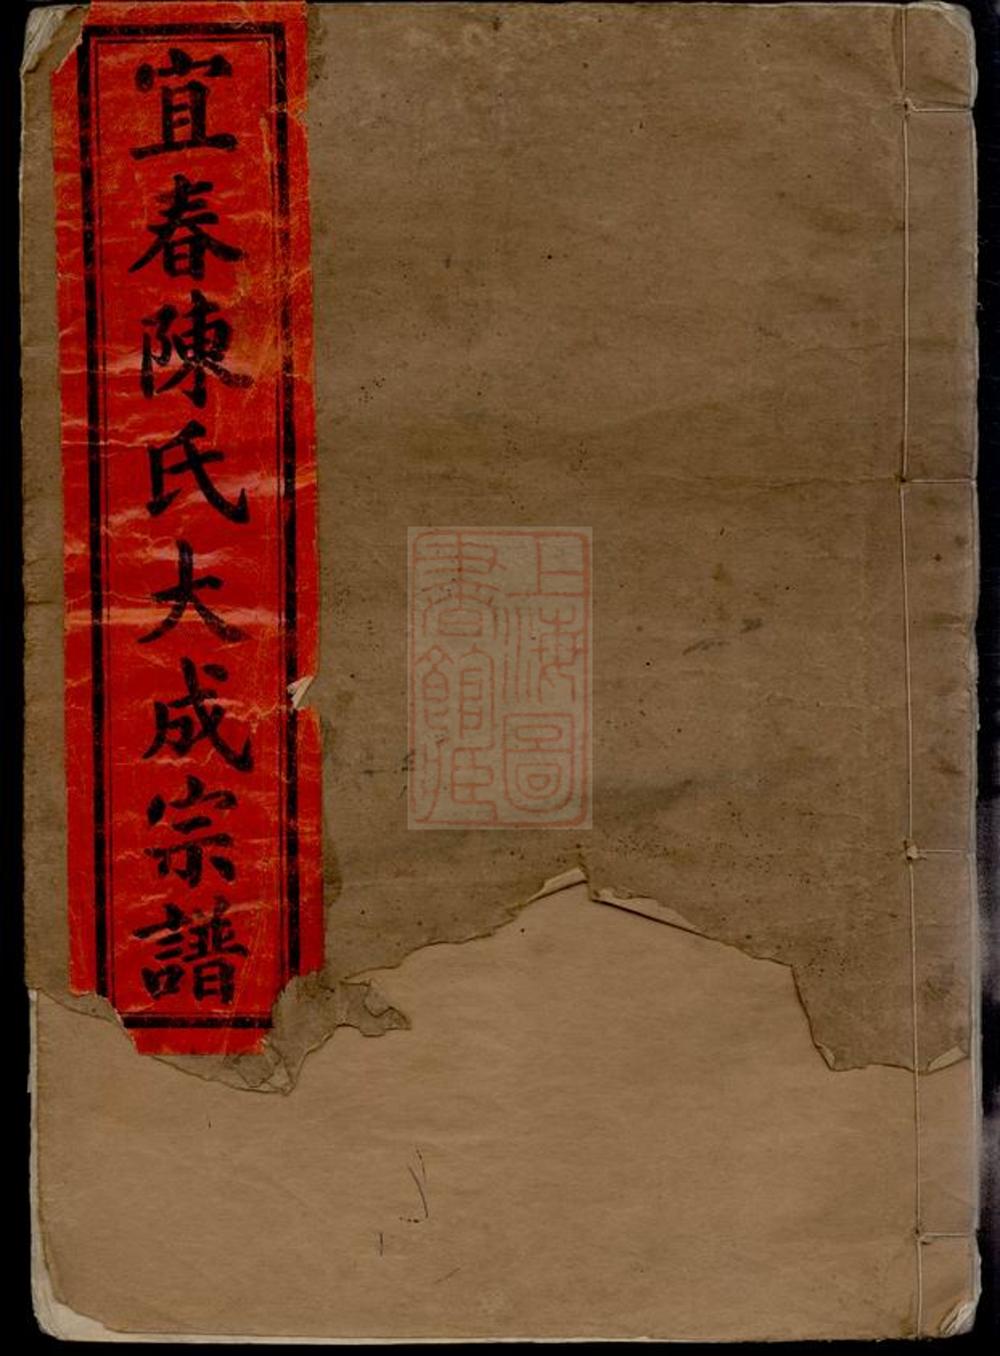 宜春陳氏大成宗譜
上海圖
書館藏